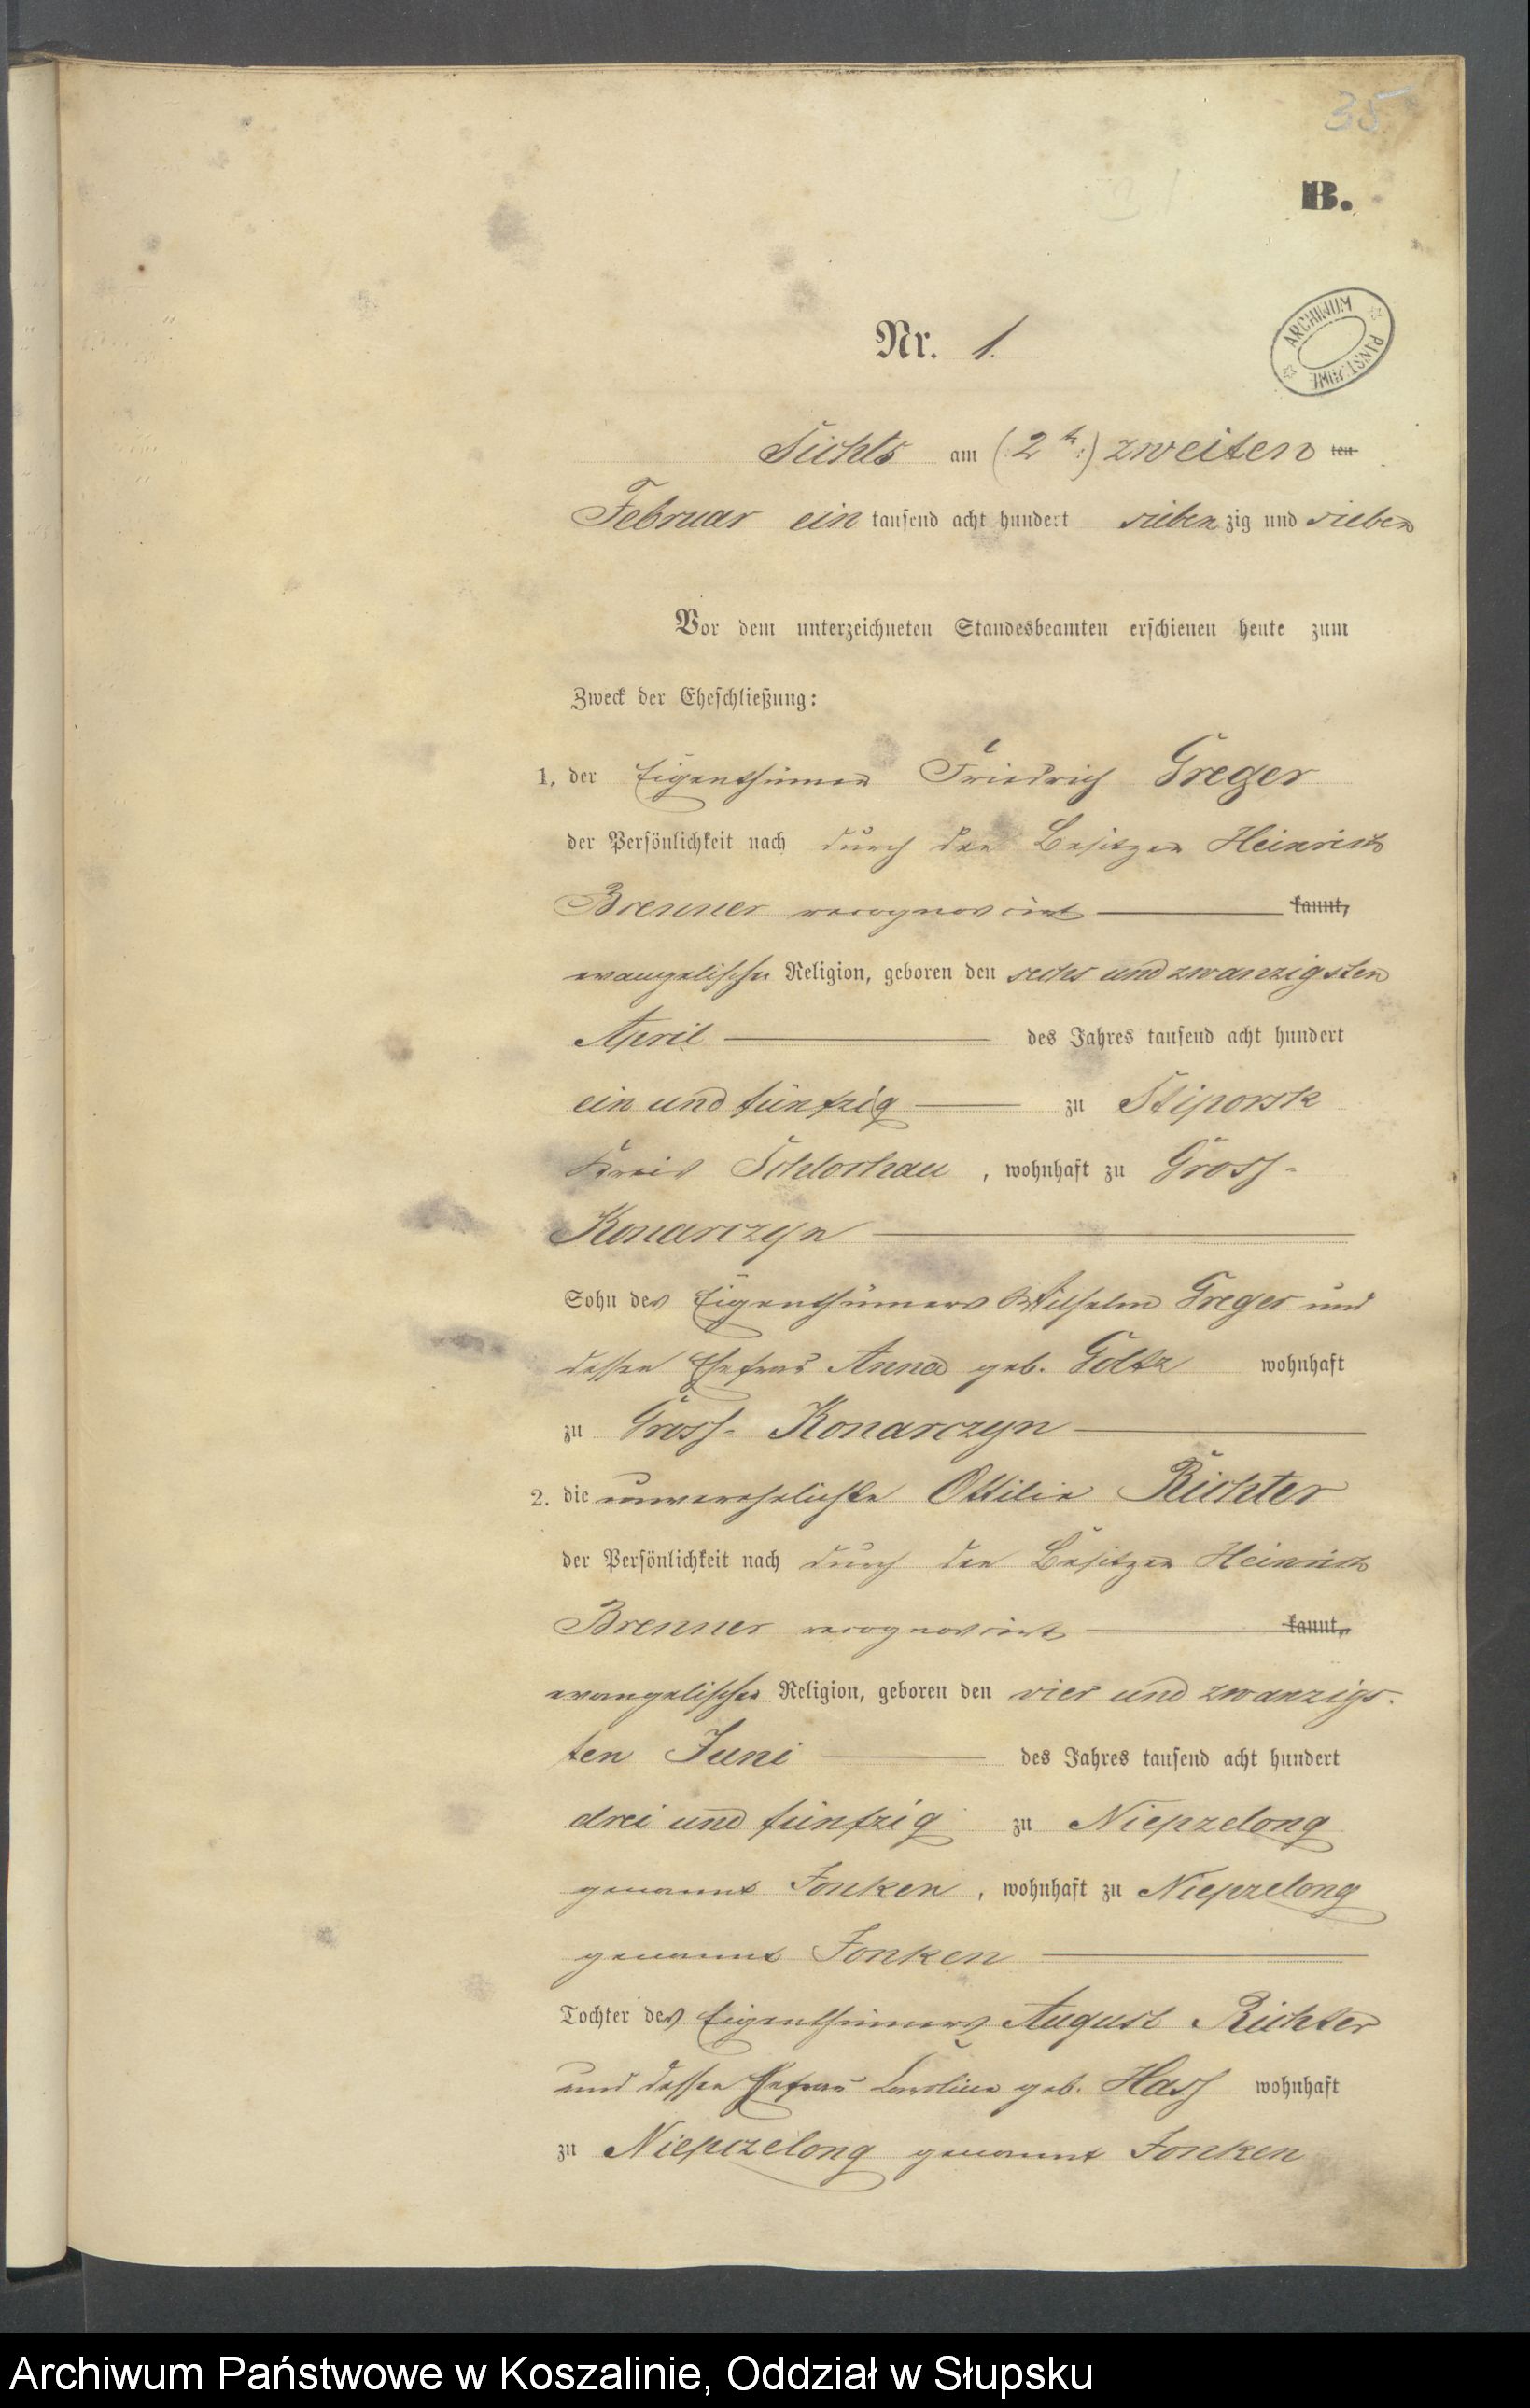 35
B.
Nr. 1.
ARCHIWUM PAŃSTWOWE
Sichts am (2t:) zweiten ten
Februar ein tausend acht hundert siebenzig und sieben
Vor dem unterzeichneten Standesbeamten erschienen heute zum
Zweck der Eheschließung:
1. der Eigenthümer Friedrich Greger
der Persönlichkeit nach durch den Besitzer Heinrich
Brenner recognoscirt kannt,
evangelischer Religion, geboren den sechs und zwanzigsten
April des Jahres tausend acht hundert
ein und fünfzig zu Stiporsk
Kreis Schlochau, wohnhaft zu Gross-
Konarczyn
Sohn des Eigenthümers Wilhelm Greger und
dessen Ehefrau Anna geb. Goltz wohnhaft
zu Gross-Konarczyn
2. die unverehelichte Ottilie Richter
der Persönlichkeit nach durch den Besitzer Heinrich
Brenner recognoscirt kannt,
evangelischer Religion, geboren den vier und zwanzigs-
ten Juni des Jahres tausend acht hundert
drei und fünfzig zu Niepzelong
genannt Fonken, wohnhaft zu Niepzelong
genannt Fonken
Tochter des Eigenthümers August Richter
und dessen Ehefrau Caroline geb. Hass wohnhaft
zu Niepczelong genannt Fonken
Archiwum Państwowe w Koszalinie, Oddział w Słupsku